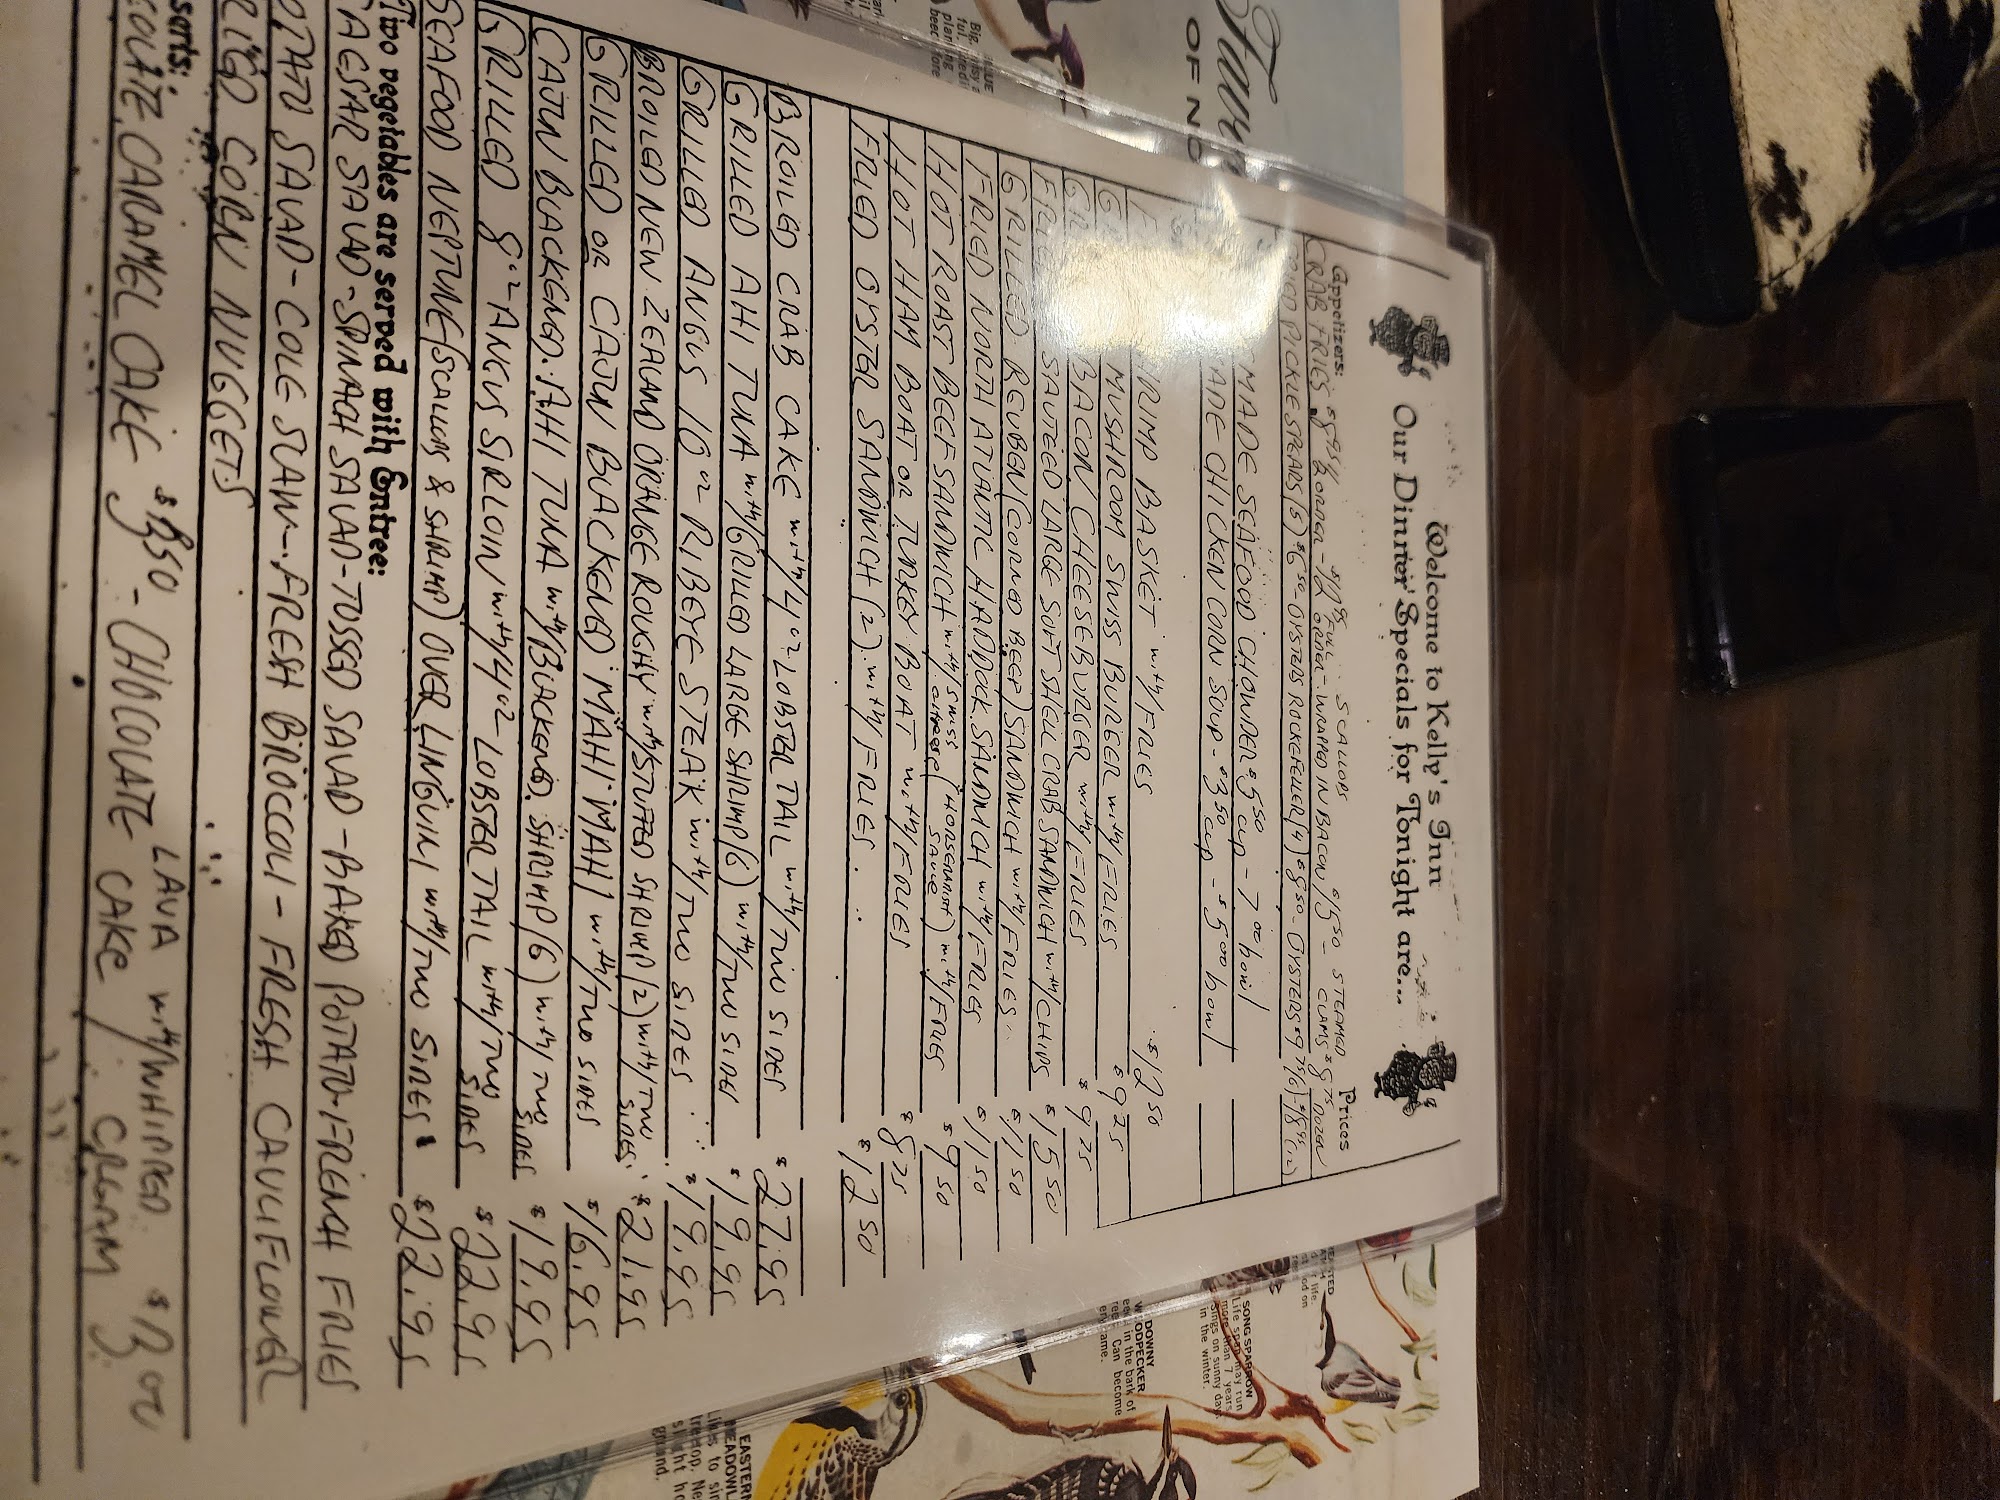 Welcome to Kelly's Inn
Our Dinner Specials for Tonight are...
Appetizers:
Prices
CRAB FRIES $8.95 1/2 ORDER - $12.95 FULL ORDER - SCALLOPS WRAPPED IN BACON $15.50 - STEAMED CLAMS $8.75 DOZEN
FRIED PICKLE SPEARS (5) $6.50 - OYSTERS ROCKEFELLER (4) $8.50 - OYSTERS
MADE SEAFOOD CHOWDER $5.50 cup - 7.00 bowl
CHICKEN CORN SOUP - $3.50 cup - $5.00 bowl
SHRIMP BASKET with/FRIES $12.50
MUSHROOM SWISS BURGER with/FRIES $9.25
BACON CHEESEBURGER with/FRIES $9.25
SAUTEED LARGE SOFT SHELL CRAB SANDWICH with/CHIPS $15.50
GRILLED REUBEN (CORNED BEEF) SANDWICH with/FRIES $11.50
FRIED NORTH ATLANTIC HADDOCK SANDWICH with/FRIES $11.50
HOT ROAST BEEF SANDWICH with/SWISS CHEESE (HORSERADISH SAUCE) with/FRIES $9.50
HOT HAM BOAT or TURKEY BOAT with/FRIES $8.75
FRIED OYSTER SANDWICH (2) with/FRIES $12.50
BROILED CRAB CAKE with 4oz LOBSTER TAIL with/TWO SIDES $27.95
GRILLED AHI TUNA with/GRILLED LARGE SHRIMP (6) with/TWO SIDES $19.95
GRILLED ANGUS 10oz RIBEYE STEAK with/TWO SIDES $19.95
BROILED NEW ZEALAND ORANGE ROUGHY with/STUFFED SHRIMP (2) with/TWO SIDES $21.95
GRILLED OR CAJUN BLACKENED MAHI-MAHI with/TWO SIDES $16.95
CAJUN BLACKENED AHI TUNA with/BLACKENED SHRIMP (6) with/TWO SIDES $19.95
GRILLED 8oz ANGUS SIRLOIN with/4oz LOBSTER TAIL with/TWO SIDES $22.95
SEAFOOD NEPTUNE (SCALLOPS & SHRIMP) OVER LINGUINI with/TWO SIDES $22.95
Two vegetables are served with Entree:
CAESAR SALAD - SPINACH SALAD - TOSSED SALAD - BAKED POTATO - FRENCH FRIES
POTATO SALAD - COLE SLAW - FRESH BROCCOLI - FRESH CAULIFLOWER
FRIED CORN NUGGETS
CARAMEL CAKE $3.50 - CHOCOLATE LAVA CAKE with/WHIPPED CREAM
OF NO
SONG SPARROW
Life span may run
more than 7 years.
Sings on sunny days
in the winter.
DOWNY
WOODPECKER
in the bark of
Can become
EASTERN
MEADOWL